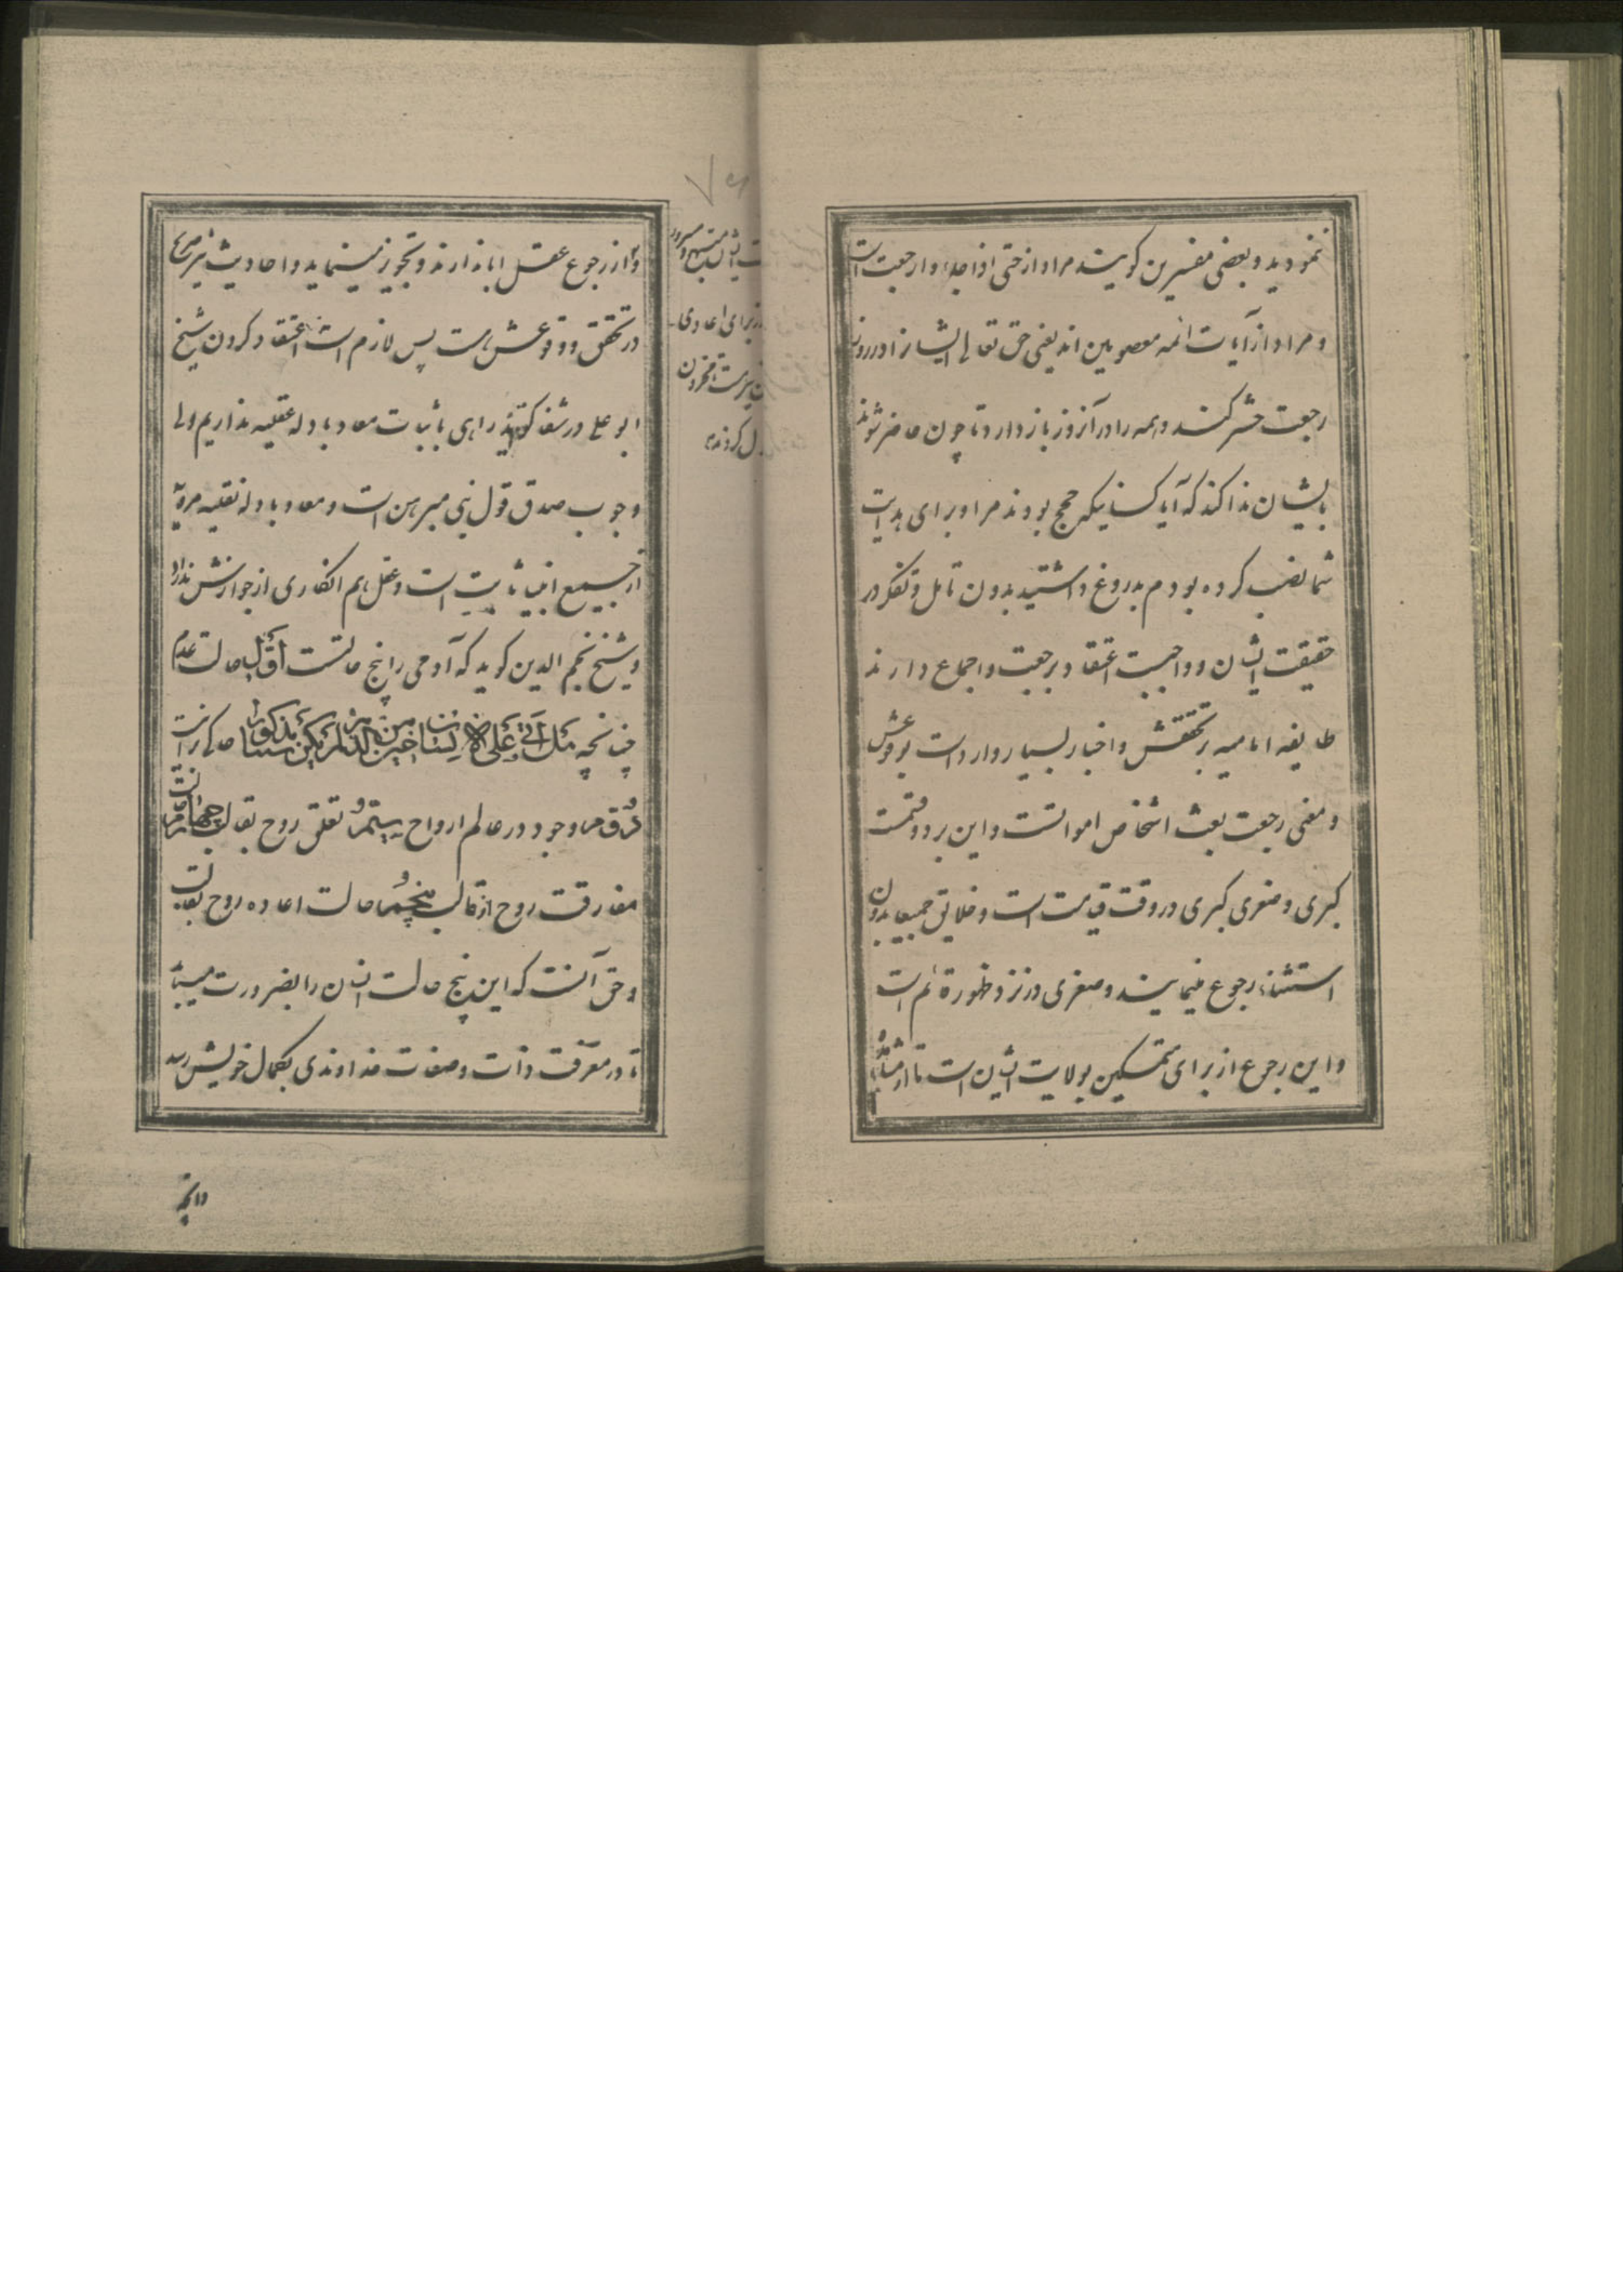 نمودید و بعضی مفسرین گویند مراد از حتی اذا جاؤا رجعت است
و مراد از آیات ائمه معصومین اند یعنی حق تعالی ایشانرا در روز
رجعت حشر کند و همه را در آنروز باز دارد تا چون حاضر شوند
بایشان ندا کند که آیا کسانیکه حجج بودند مرا و برای هدایت
شما نصب کرده بودم بدروغ داشتید بدون تامل و تفکر در
حقیقت ایشان و واجبست اعتقاد برجعت و اجماع دارند
طایفه امامیه بر تحققش و اخبار بسیار وارد است بوقوعش
و معنی رجعت بعث اشخاص امواتست و این بر دو قسمست
کبری و صغری کبری در وقت قیامت است و خلایق جمیعا بدون
استثناء رجوع مینمایند و صغری در نزد ظهور قائم است
و این رجوع از برای متمسکین بولایت ایشان است تا از مشاهده
ایشان مبتهج و مسرور
برای اعادی
ل کردند
و آنرا رجوع عقل ابا ندارند و تجویز مینماید و احادیث نیز صریح
در تحقق و وقوعش هست پس لازم است اعتقاد کردن شیخ
ابو علی در شفا گوید راهی باثبات معاد بادله عقلیه نداریم ولی
وجوب صدق قول نبی مبرهن است و معاد بادله نقلیه مرویه
از جمیع انبیا ثابت است و عقل هم انکاری از جوازش ندارد
و شیخ نجم الدین گوید که آدمی را پنج حالتست اَوّل حالت عدم
چنانچه هَل اَتی عَلَی الاِنسانِ حینٌ مِنَ الدَّهرِ لَم یَکُن شَیئاً مَذکُوراً
دُوّم وجود در عالم ارواح سِیّم تعلق روح بقالب چهارم
مفارقت روح از قالب پنجم حالت اعاده روح بقالب
و حق آنست که این پنج حالت انسان را بضرورت میباید
تا در معرفت ذات و صفات خداوندی بکمال خویش رسد